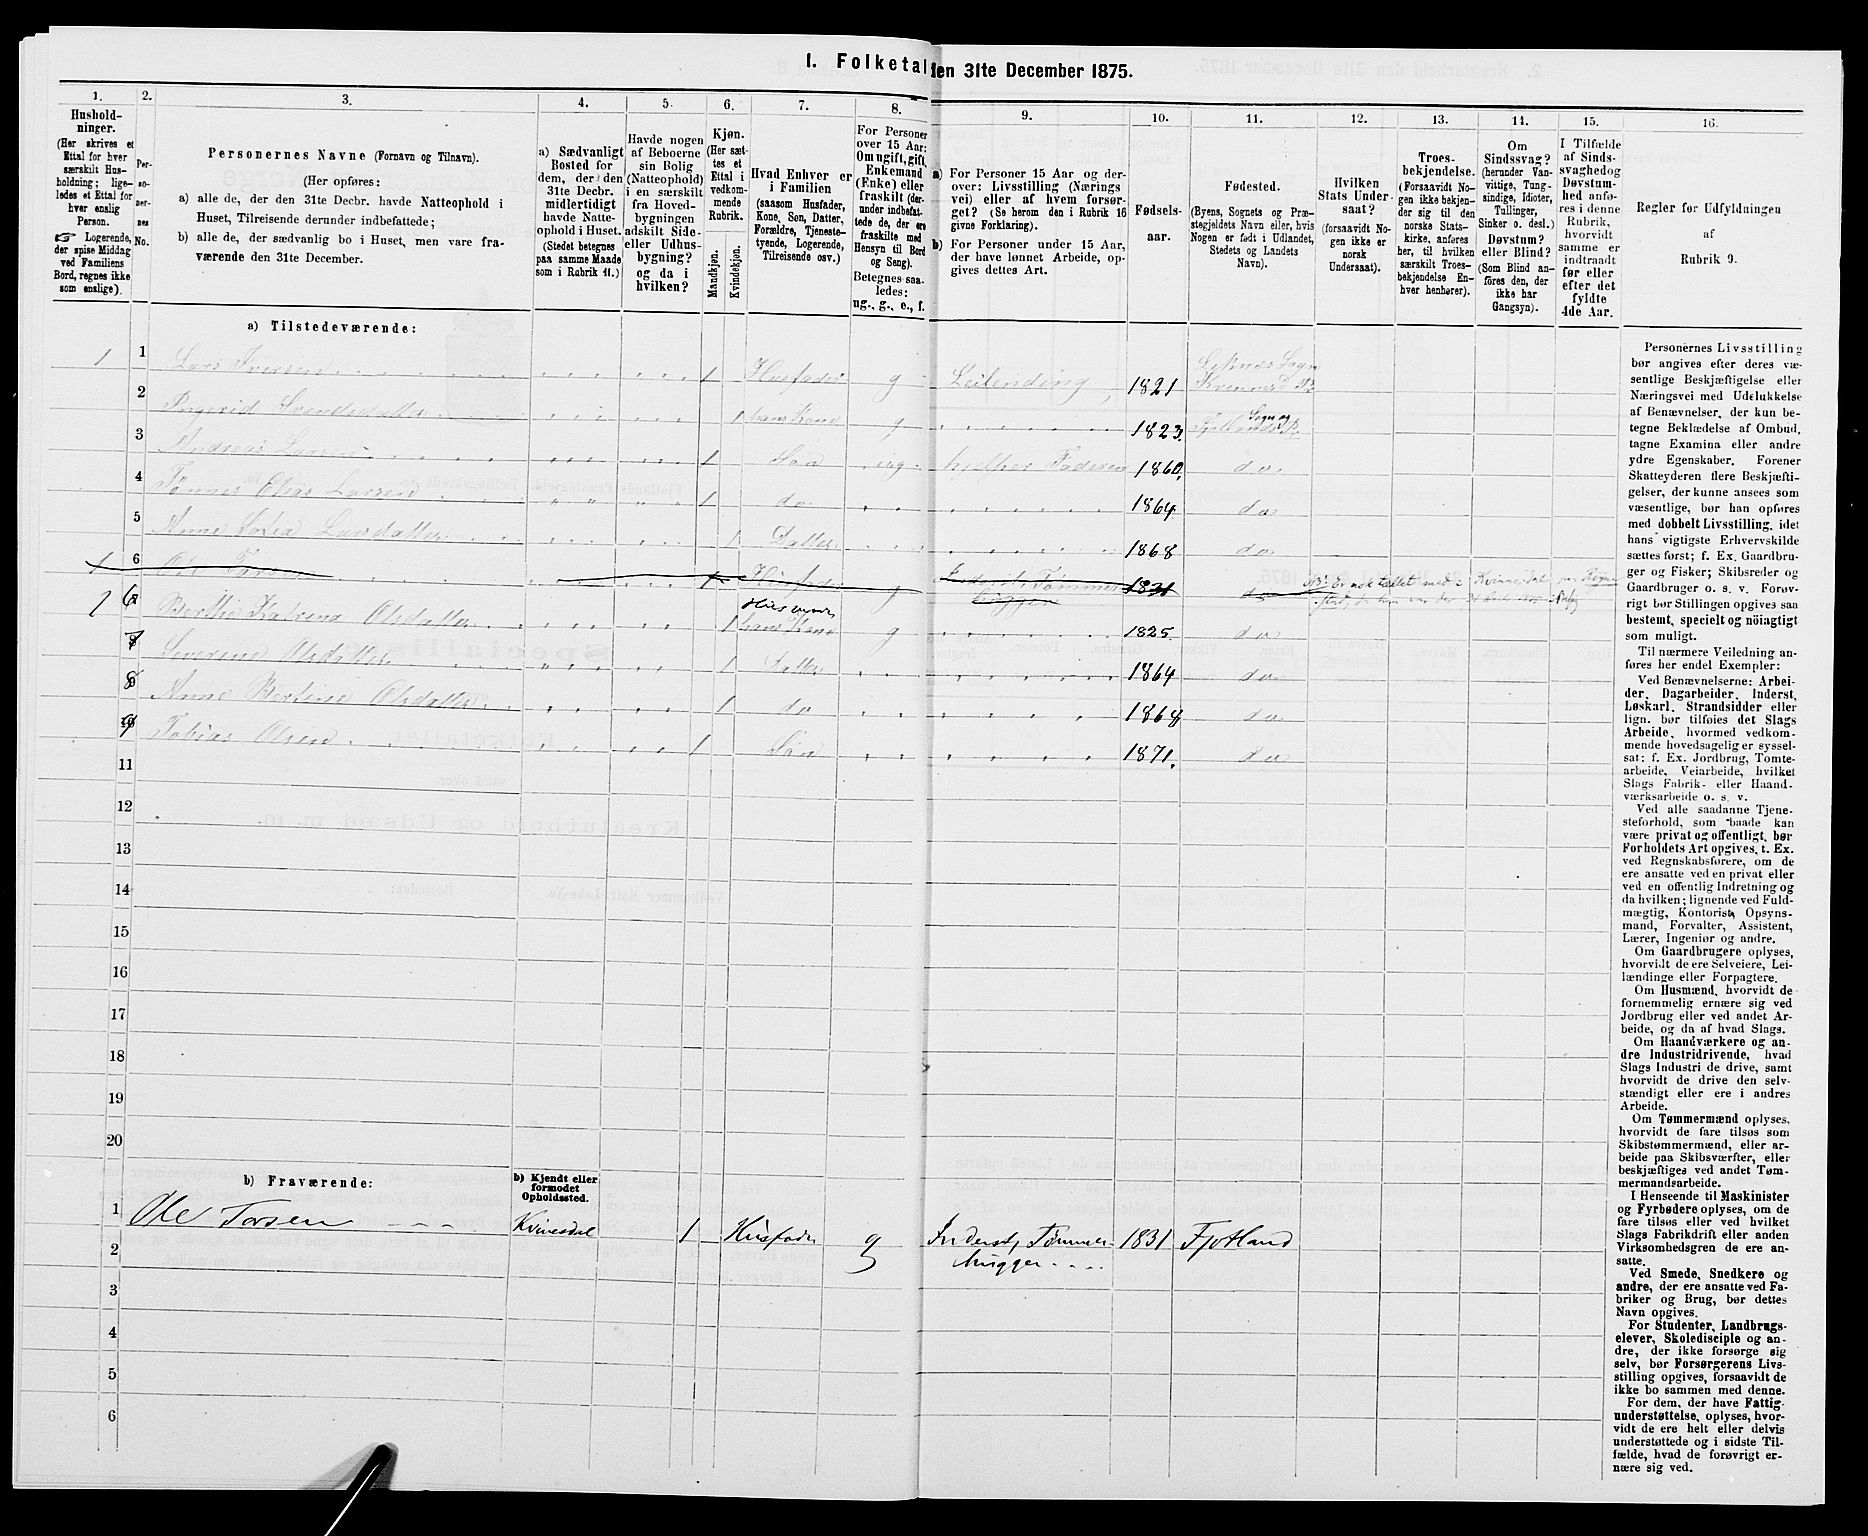 1. Folketal den 31te December 1875.
1.
Hushold-
ninger.
(Her skrives et
Ettal for hver
særskilt Hus-
holdning; lige-
ledes et Ettal for
hver enslig
Person.
☞ Logerende,
der spise Middag
ved Familiens
Bord, regnes ikke
som enslige).
2.
Per-
so-
ner-
nes
No.
3.
Personernes Navne (Fornavn og Tilnavn).
(Her opføres:
a) alle de, der den 31te Decbr. havde Natteophold i
Huset, Tilreisende derunder indbefattede;
b) alle de, der sædvanlig bo i Huset, men vare fra-
værende den 31te December.
4.
a) Sædvanligt
Bosted for
dem, der den
31te Decbr.
midlertidigt
havde Natte-
ophold i Huset.
(Stedet betegnes
paa samme Maade
som i Rubrik 11.)
5.
Havde nogen
af Beboerne
sin Bolig
(Natteophold)
i en særskilt
fra Hoved-
bygningen
adskilt Side-
eller Udhus-
bygning?
og da i
hvilken?
6.
Kjøn.
(Her sæt-
tes et
Ettal i
vedkom-
mende
Rubrik.
Mandkjøn.
Kvindekjøn.
7.
Hvad Enhver er
i Familien
(saasom Husfader,
Kone, Søn, Datter,
Forældre, Tjeneste-
tyende, Logerende,
Tilreisende osv.)
8.
For Personer
over 15 Aar:
Om ugift, gift,
Enkemand
(Enke) eller
fraskilt (der-
under indbefat-
tede de, der ere
fraskilte med
Hensyn til Bord
og Seng).
Betegnes saa-
ledes:
ug., g., e., f.
9.
a) For Personer 15 Aar og der-
over: Livsstilling (Nærings
vei) eller af hvem forsør-
get? (Se herom den i Rubrik 16
givne Forklaring).
b) For Personer under 15 Aar,
der have lønnet Arbeide, op-
gives dettes Art.
10.
Fødsels-
aar.
11.
Fødested.
(Byens, Sognets og Præ-
stegjeldets Navn eller, hvis
Nogen er født i Udlandet,
Stedets og Landets
Navn).
12.
Hvilken
Stats Under-
saat?
(forsaavidt No-
gen ikke er
norsk
Undersaat).
13.
Troes-
bekjendelse.
(Forsaavidt No-
gen ikke bekjen-
der sig til den
norske Stats-
kirke, anføres
her, til hvilken
særskilt Troes-
bekjendelse En-
hver henhører).
14.
Om
Sindssvag?
(herunder Van-
vittige, Tung-
sindige, Idioter,
Tullinger,
Sinker o. desl.)
Døvstum?
eller Blind?
(Som Blind an-
føres den, der
ikke har
Gangsyn).
15.
I Tilfælde
af Sinds-
svaghed og
Døvstum-
hed anfø-
res i denne
Rubrik,
hvorvidt
samme er
indtraadt
før eller
efter det
fyldte
4de Aar.
16.
Regler for Udfyldningen
af
Rubrik 9.
a) Tilstedeværende:
1 1 Lars Iversen 1 Husfader g Leilending 1821 Leknes Sogn Kvinnesd Pr
2 Ingerid Svendsdatter 1 hans Kone g 1823. Fjotlands Sogn og Pr
3 Andreas Larsen 1 Søn ug. hjelper Faderen 1860. do
4 Tønnes Elias Larsen 1 do 1864. do
5 Anne Sofia Larsdatter 1 Datter 1868 do
1 6 Ole Torsen 1 Husfader g Inderst, Tømmer 1831 do
hugger
1 6 Berthe Katrina Olsdatter 1 Husmoder hans Kone g 1825. do
7 Severine Olsdatter 1 Datter 1864 do
8 Anne Bertine Olsdatter 1 do 1868 do
9 Tobias Olsen 1 Søn 1871. do
11
12
13
14
15
16
17
18
19
20
b) Fraværende:
b) Kjendt eller
formodet
Opholdssted.
1 Ole Torsen Kvinesdal 1 Husfader g Inderst, Tømmer- 1831 Fjotland
2 hugger
3
4
5
6
Personernes Livsstilling
bør angives efter deres væ-
sentlige Beskjæftigelse eller
Næringsvei med Udelukkelse
af Benævnelser, der kun be-
tegne Beklædelse af Ombud,
tagne Examina eller andre
ydre Egenskaber. Forener
Skatteyderen flere Beskjæfti-
gelser, der kunne ansees som
væsentlige, bør han opføres
med dobbelt Livsstilling, idet
hans vigtigste Erhvervskilde
sættes først; f. Ex. Gaardbru-
ger og Fisker; Skibsreder og
Gaardbruger o. s. v. Forøv-
rigt bør Stillingen opgives saa
bestemt, specielt og nøiagtigt
som muligt.
Til nærmere Veiledning an-
føres her endel Exempler:
Ved Benævnelserne: Arbei-
der, Dagarbeider, Inderst,
Løskarl, Strandsidder eller
lign. bør tilføies det Slags
Arbeide, hvormed vedkom-
mende hovedsagelig er syssel-
sat; f. Ex. Jordbrug, Tomte-
arbeide, Veiarbeide, hvilket
Slags Fabrik- eller Haand-
værksarbeide o. s. v.
Ved alle saadanne Tjene-
steforhold, som baade kan
være privat og offentligt, bør
Forholdets Art opgives, t. Ex.
ved Regnskabsførere, om de
ere ansatte ved en privat eller
ved en offentlig Indretning og
da hvilken; lignende ved Fuld-
mægtig, Kontorist, Opsyns-
mand, Forvalter, Assistent,
Lærer, Ingeniør og andre.
Om Gaardbrugere oplyses,
hvorvidt de ere Selveiere, Lei-
lændinge eller Forpagtere.
Om Husmænd, hvorvidt de
fornemmelig ernære sig ved
Jordbrug eller ved andet Ar-
beide, og da af hvad Slags.
Om Haandværkere og an-
dre Industridrivende, hvad
Slags Industri de drive, samt
hvorvidt de drive den selv-
stændigt eller ere i andres
Arbeide.
Om Tømmermænd oplyses,
hvorvidt de fare tilsøs som
Skibstømmermænd, eller ar-
beide paa Skibsværfter, eller
beskjæftiges ved andet Tøm-
mermandsarbeide.
I Henseende til Maskinister
og Fyrbødere oplyses, om de
fare tilsøs eller ved hvilket
Slags Fabrikdrift eller anden
Virksomhedsgren de ere an-
satte.
Ved Smede, Snedkere og
andre, der ere ansatte ved Fa-
briker og Brug, bør dettes
Navn opgives.
For Studenter, Landbrugs-
elever, Skoledisciple og an-
dre, der ikke forsørge sig
selv, bør Forsørgerens Livs-
stilling opgives, forsaavidt de
ikke bo sammen med denne.
For dem, der have Fattig-
understøttelse, oplyses, hvor-
vidt de ere helt eller delvis
understøttede og i sidste Til-
fælde, hvad de forøvrigt er-
nære sig ved.